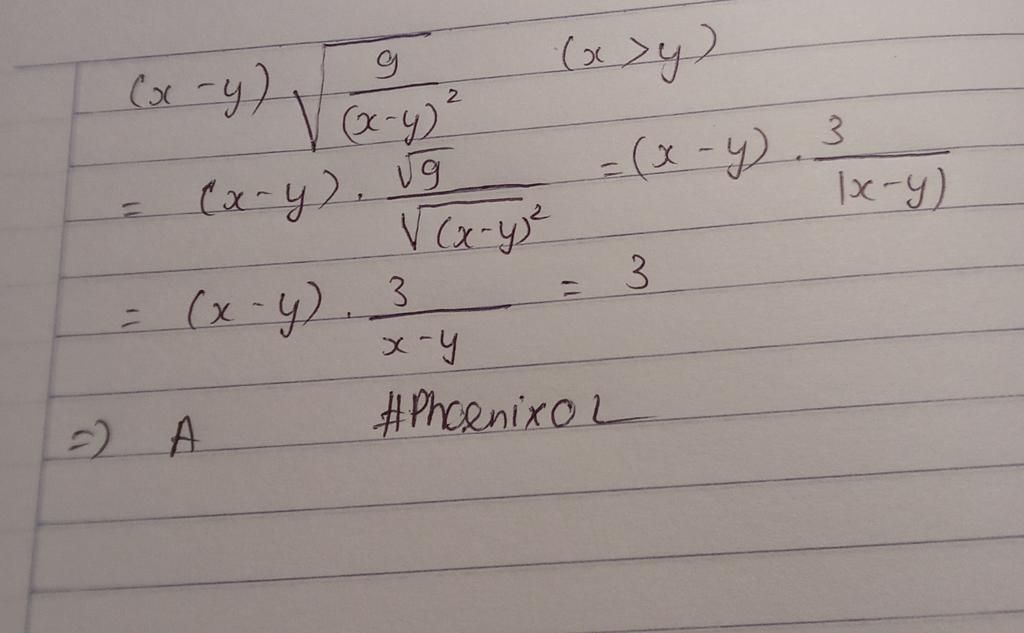 (x-y) √(9/(x-y)²) (x>y)
= (x-y) . √9/√(x-y)² = (x-y) . 3/|x-y)
= (x-y) . 3/x-y = 3
=> A #PhoenixOL